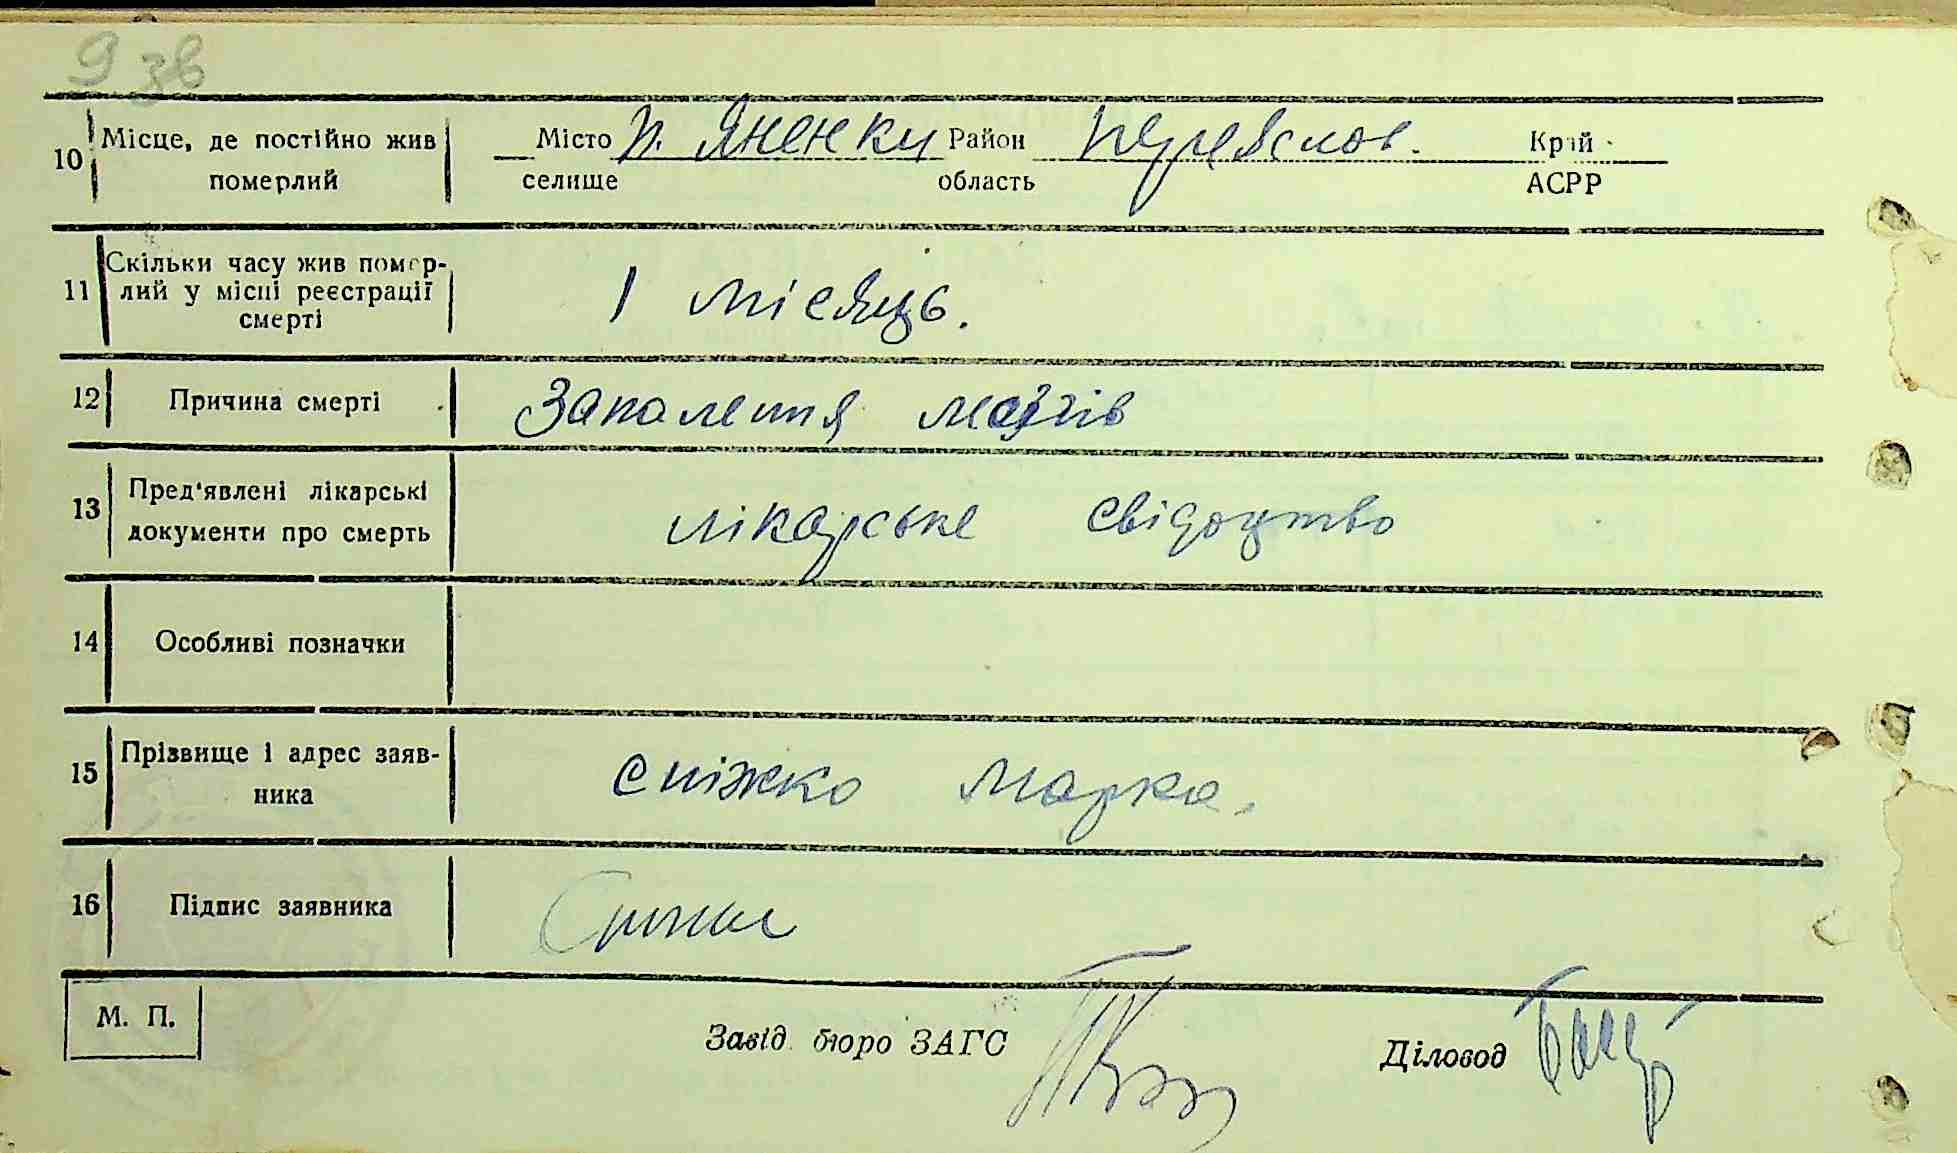 9 зв
10 Місце, де постійно жив померлий Місто селище п. Яненки Район область Переяслов. Край АСРР
11 Скільки часу жив помер-
лий у місці реєстрації
смерті 1 місяць.
12 Причина смерті Запалення мозків
13 Пред'явлені лікарські
документи про смерть лікарське свідоцтво
14 Особливі позначки
15 Прізвище і адрес заяв-
ника Сніжко Марка.
16 Підпис заявника
М. П.
Завід. бюро ЗАГС Діловод